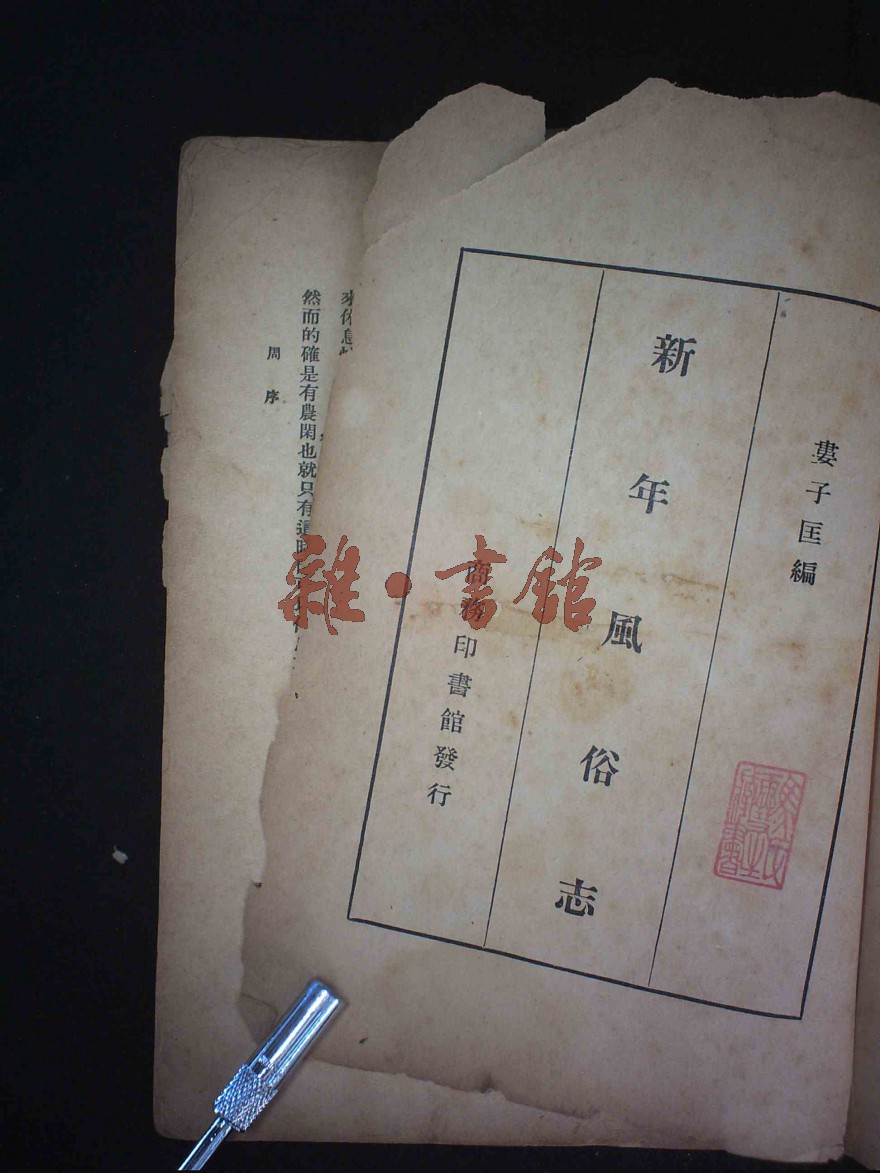 婁子匡編
新年風俗志
商務印書館發行
然而的確是有農閑也就只有這時
周序
雜·書館